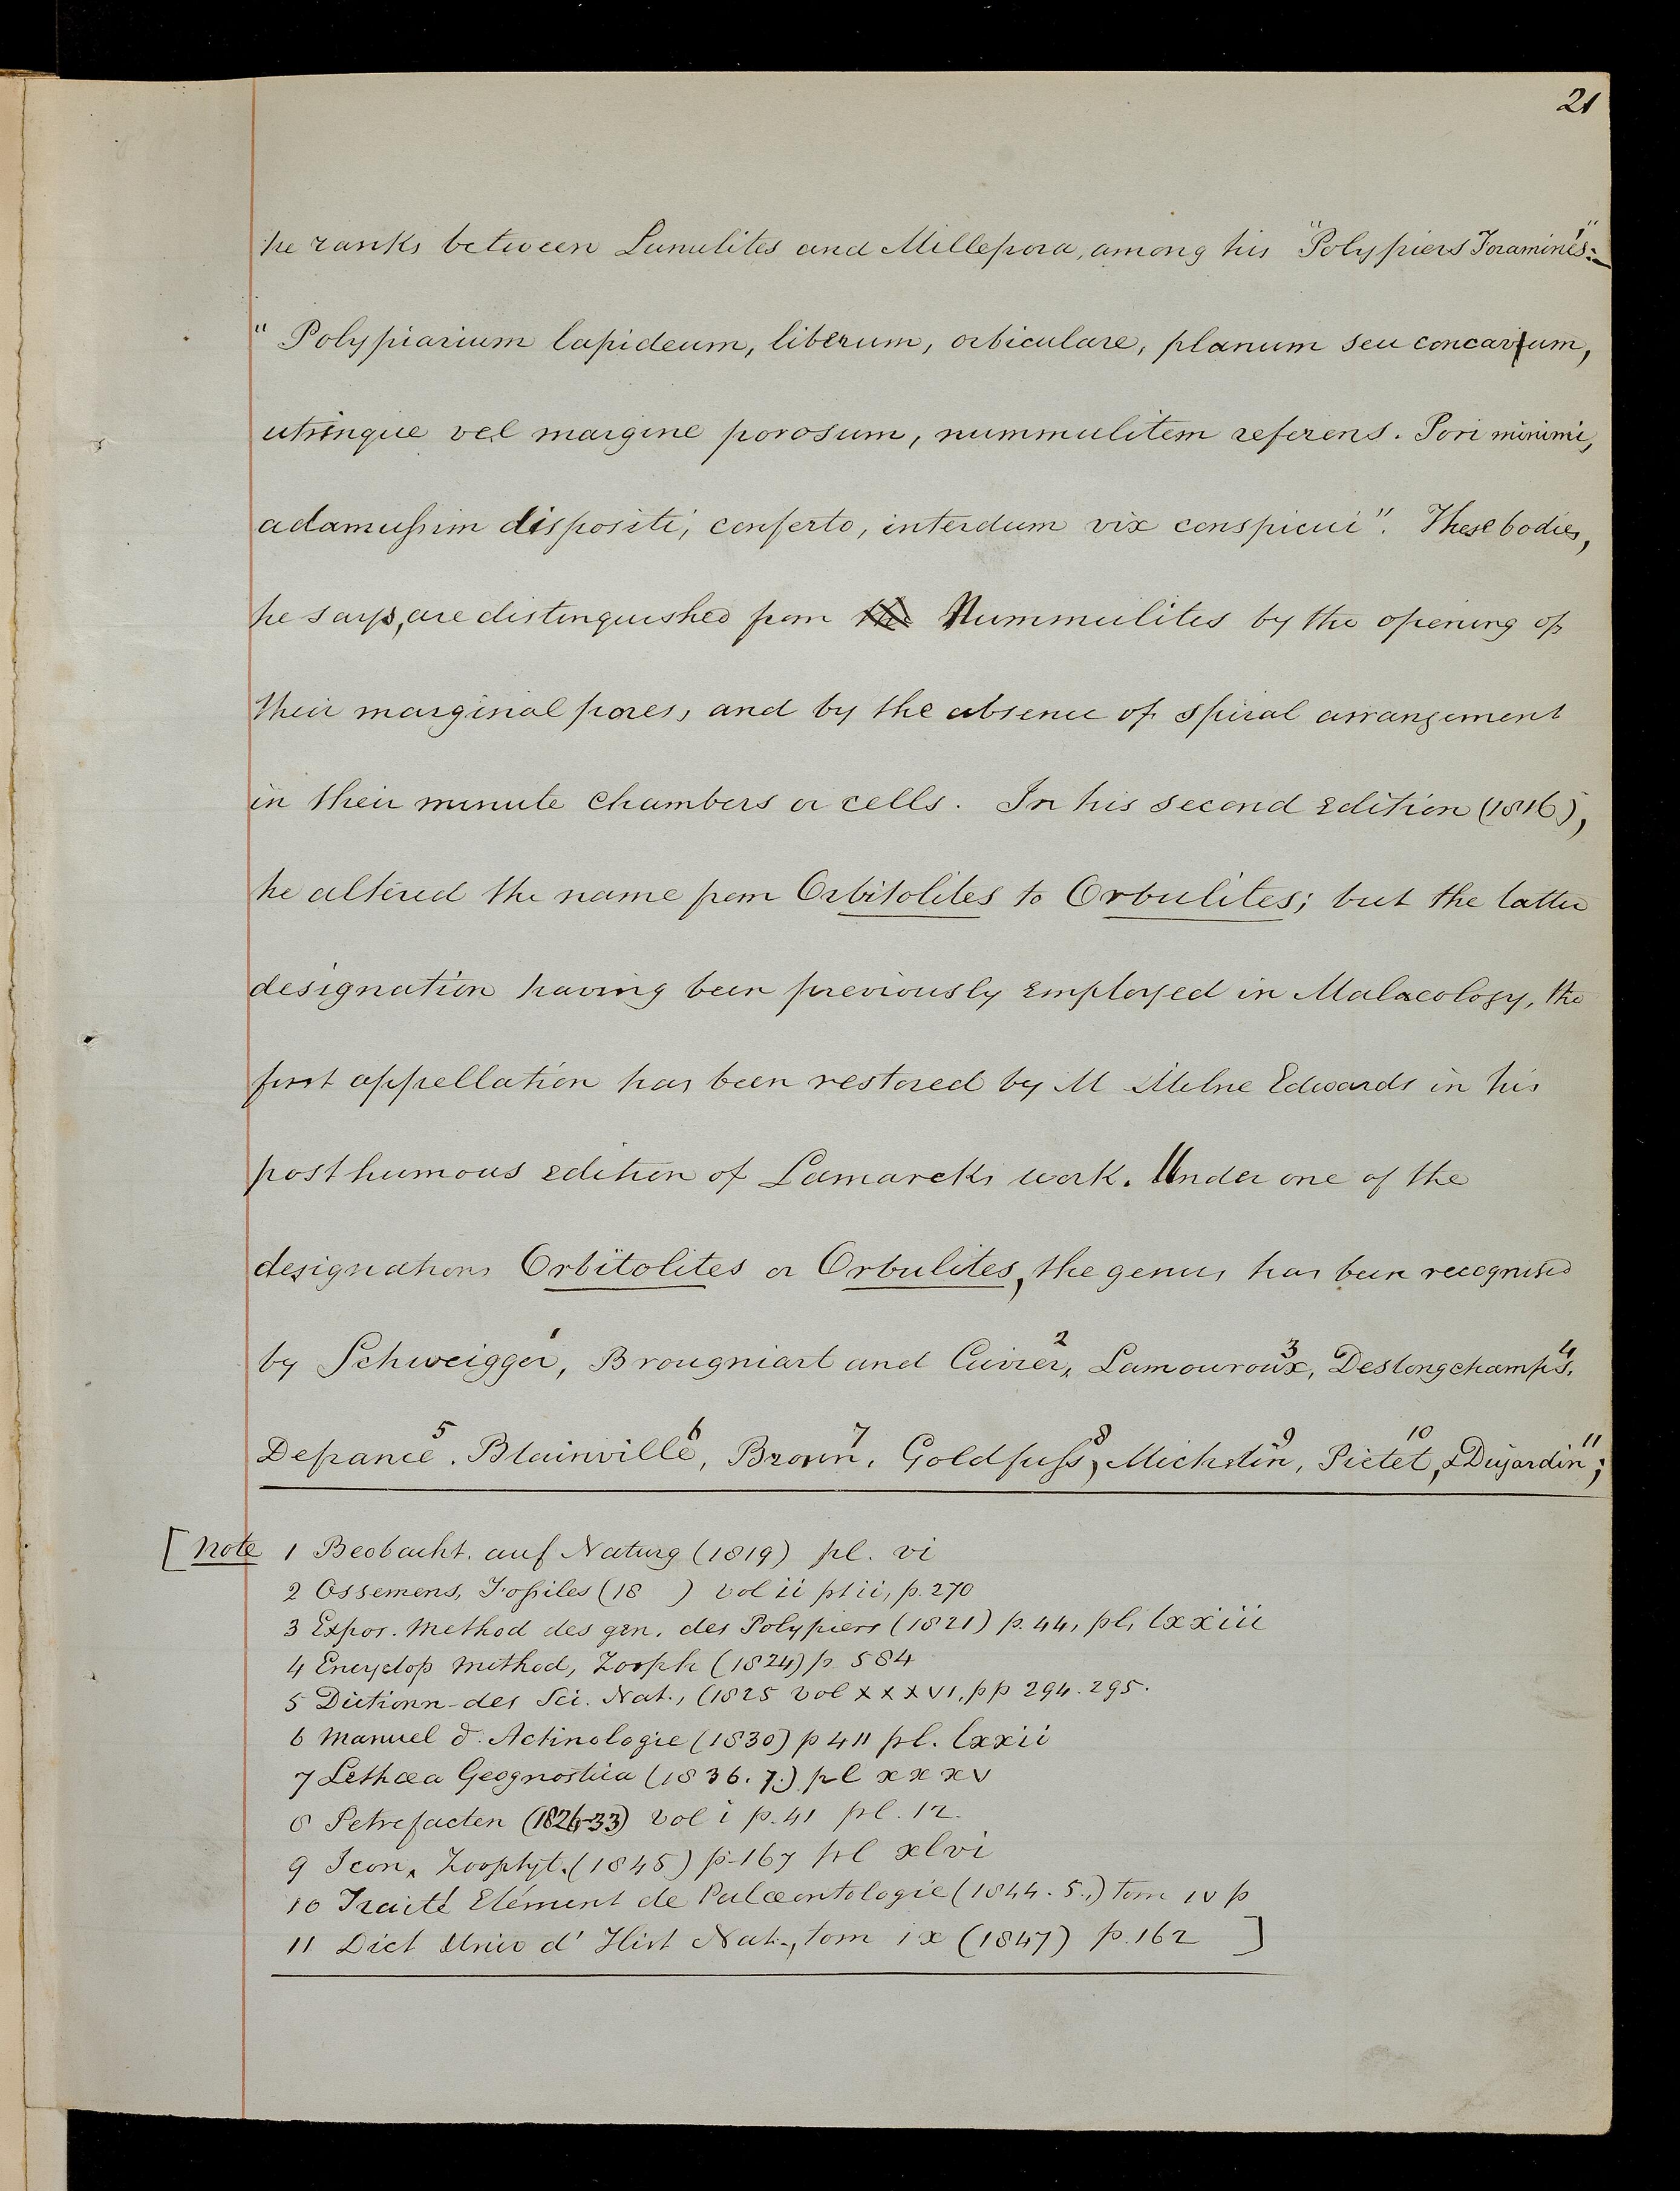 21
he ranks between Lunulites and Millepora, among his "Polypiers Foraminés":—
" Polypiarium lapideum, liberum, orbiculare, planum seu concavum,
utrinque vel margine porosum, nummulitem referens. Pori minimi,
adamussim dispositi, conferto, interdum vix conspicui". These bodies,
he says, are distinguished from the Nummulites by the opening of
their marginal pores, and by the absence of spiral arrangement
in their minute chambers or cells. In his second edition (1816),
he altered the name from Orbitolites to Orbulites; but the latter
designation having been previously employed in Malacology, the
first appellation has been restored by M Milne Edwards in his
posthumous edition of Lamarcks work. Under one of the
designations Orbitolites or Orbulites, the genus has been recognised
by Schweigger 1, Brougniart and Cuvier 2, Lamouroux 3, Deslongchamps 4,
Defrance 5. Blainville 6, Bronn 7, Goldfuss 8, Michelin 9, Pictet 10, & Dujardin 11;
[Note 1 Beobacht. auf Naturg (1819) pl. vi
2 Ossemens, Fossiles (18 ) vol ii pt ii, p. 270
3 Expos. Method des gen. des Polypiers (1821) p. 44, pl, lxxiii
4 Encyclop Method, Zooph (1824) p 584
5 Dictionn des Sci. Nat., (1825 vol XXXVI, pp 294. 295.
6 Manuel d' Actinologie (1830) p 411 pl. lxxii
7 Lethæa Geognostica (1836.7.) pl xxxv
8 Petrefacten (1826-33) vol i p. 41 pl. 12.
9 Icon, Zoophyt. (1845) p-167 pl xlvi
10 Traité Elément de Palæontologie (1844.5.) tom IV p
11 Dict Univ d' Hist Nat., tom ix (1847) p. 162 ]